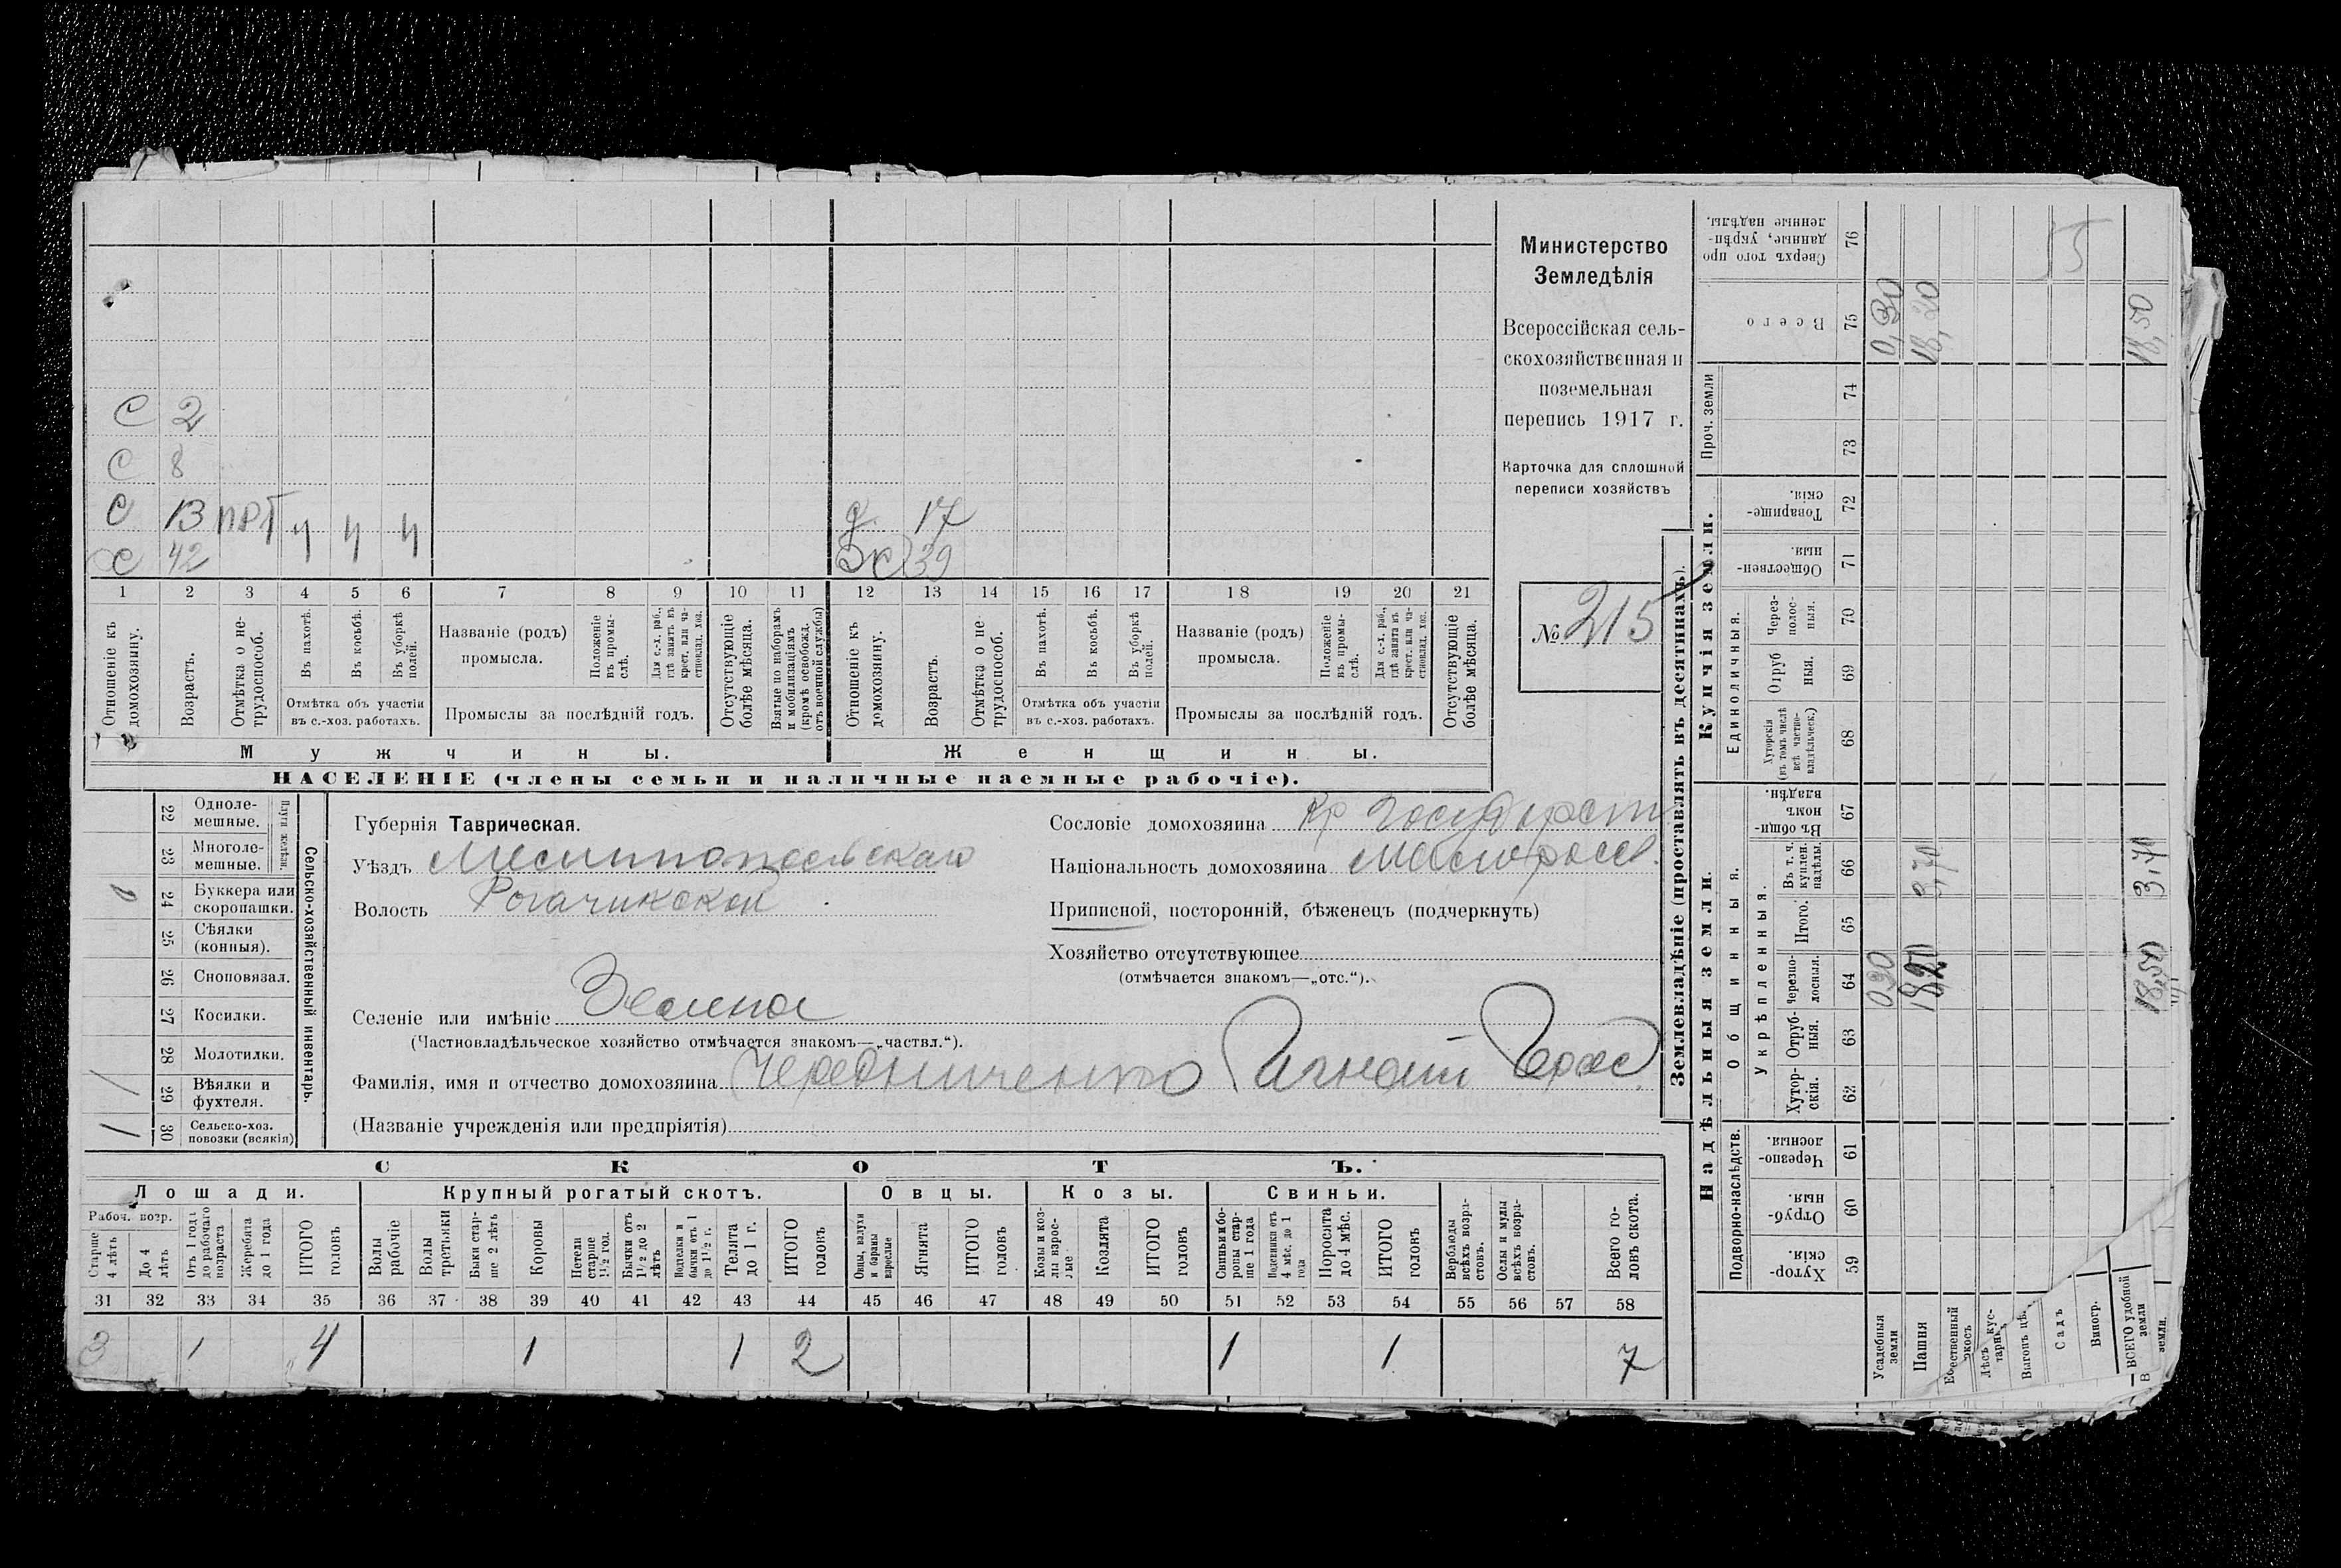 С 2
С 8
С 13 ПРТ Ч Ч Ч
Д. 17
С 42
Ж 39
1 2 3 4 5 6 7 8 9 10 11 12 13 14 15 16 17 18 19 20 21
Отношеніе къ домохозяину.
Возрастъ.
Отмѣтка о нетрудоспособ.
Въ пахотѣ.
Въ косьбѣ.
Въ уборкѣ полей.
Отмѣтка объ участіи
въ с.-хоз. работахъ.
Названіе (родъ)
промысла.
Положеніе въ промыслѣ.
Для с.-х. раб., гдѣ занятъ въ крест. или частновлад. хоз.
Промыслы за послѣдній годъ.
Отсутствующіе болѣе мѣсяца.
Взятые по наборамъ и мобилизаціямъ (кромѣ освобожд. отъ военной службы)
Отношеніе къ домохозяину.
Возрастъ.
Отмѣтка о нетрудоспособ.
Въ пахотѣ.
Въ косьбѣ.
Въ уборкѣ полей.
Отмѣтка объ участіи
въ с.-хоз. работахъ.
Названіе (родъ)
промысла.
Положеніе въ промыслѣ.
Для с.-х. раб., гдѣ занята въ крест. или частновлад. хоз.
Промыслы за послѣдній годъ.
Отсутствующіе болѣе мѣсяца.
Мужчины.
Женщины.
НАСЕЛЕНІЕ (члены семьи и наличные наемные рабочіе).
Министерство
Земледѣлія
Всероссійская сель-
скохозяйственная и
поземельная
перепись 1917 г.
Карточка для сплошной
переписи хозяйствъ
№ 215
Сельско-хозяйственный инвентарь.
Плуги желѣзн.
22 Одноле-
мешные.
23 Многоле-
мешные.
24 Буккера или
скоропашки.
25 Сѣялки
(конныя).
26 Сноповязал.
27 Косилки.
28 Молотилки.
29 Вѣялки и
фухтеля.
1
30 Сельско-хоз.
повозки (всякія)
1
Губернія Таврическая.
Уѣздъ Мелитопольскаго
Волость Рогачикской
Селеніе или имѣніе Зелена
(Частновладѣльческое хозяйство отмѣчается знакомъ—„частвл.“).
Фамилія, имя и отчество домохозяина Чередниченко Игнатій Герас
(Названіе учрежденія или предпріятія)
Сословіе домохозяина Кр Государст
Національность домохозяина Малоросс.
Приписной, посторонній, бѣженецъ (подчеркнуть)
Хозяйство отсутствующее
(отмѣчается знакомъ—„отс.“).
СКОТЪ.
Лошади.
Крупный рогатый скотъ.
Овцы.
Козы.
Свиньи.
Рабоч. возр.
Старше 4 лѣтъ
До 4 лѣтъ
Отъ 1 года до рабочаго возраста
Жеребята до 1 года
ИТОГО головъ
Волы рабочіе
Волы третьяки
Быки старше 2 лѣтъ
Коровы
Нетели старше 1½ год.
Бычки отъ 1½ до 2 лѣтъ
Телята до 1 г.
ИТОГО головъ
Овцы, валухи и бараны взрослые
Ягнята
ИТОГО головъ
Козы и козлы взрослые
Козлята
ИТОГО головъ
Свиньи и боровы старше 1 года
Подсвинки отъ 4 мѣс. до 1 года
Поросята до 4 мѣс.
ИТОГО головъ
Верблюды всѣхъ возрастовъ.
Ослы и мулы всѣхъ возрастовъ.
Всего головъ скота.
31 32 33 34 35 36 37 38 39 40 41 42 43 44 45 46 47 48 49 50 51 52 53 54 55 56 57 58
3 1 4 1 1 2 1 1 7
Землевладѣніе (проставлять въ десятинахъ).
Надѣльныя земли.
Купчія земли.
Проч. земли
Подворно-наслѣдств.
Общинныя.
Укрѣпленныя.
Единоличныя.
Хуторскія 59
Отрубныя. 60
Черезполосныя. 61
Хуторскія. 62
Отрубныя. 63
Черезполосныя. 64
Итого. 65
Въ т. ч. куплен. надѣлы. 66
Въ общиномъ владѣн. 67
Хуторскія (въ томъ числѣ всѣ частновладѣльческ.) 68
Отрубныя. 69
Черезполосныя. 70
Общественныя. 71
Товарищескія. 72
73
74
Всего 75
Сверхъ того проданные, укрѣпленные надѣлы. 76
Усадебныя земли
0,30 0,30
Пашня
18,20 3,70 18,20
Естественный
Лѣсъ
Выгонъ
Садъ
Виногр.
ВСЕГО удобной земли
18,50 3,70 18,50
земли.
55